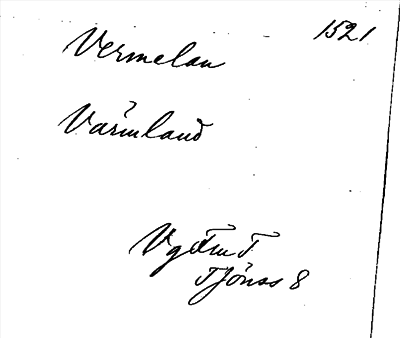 Vermelan 1521
Värmland
VgFmT
Tjönss 8